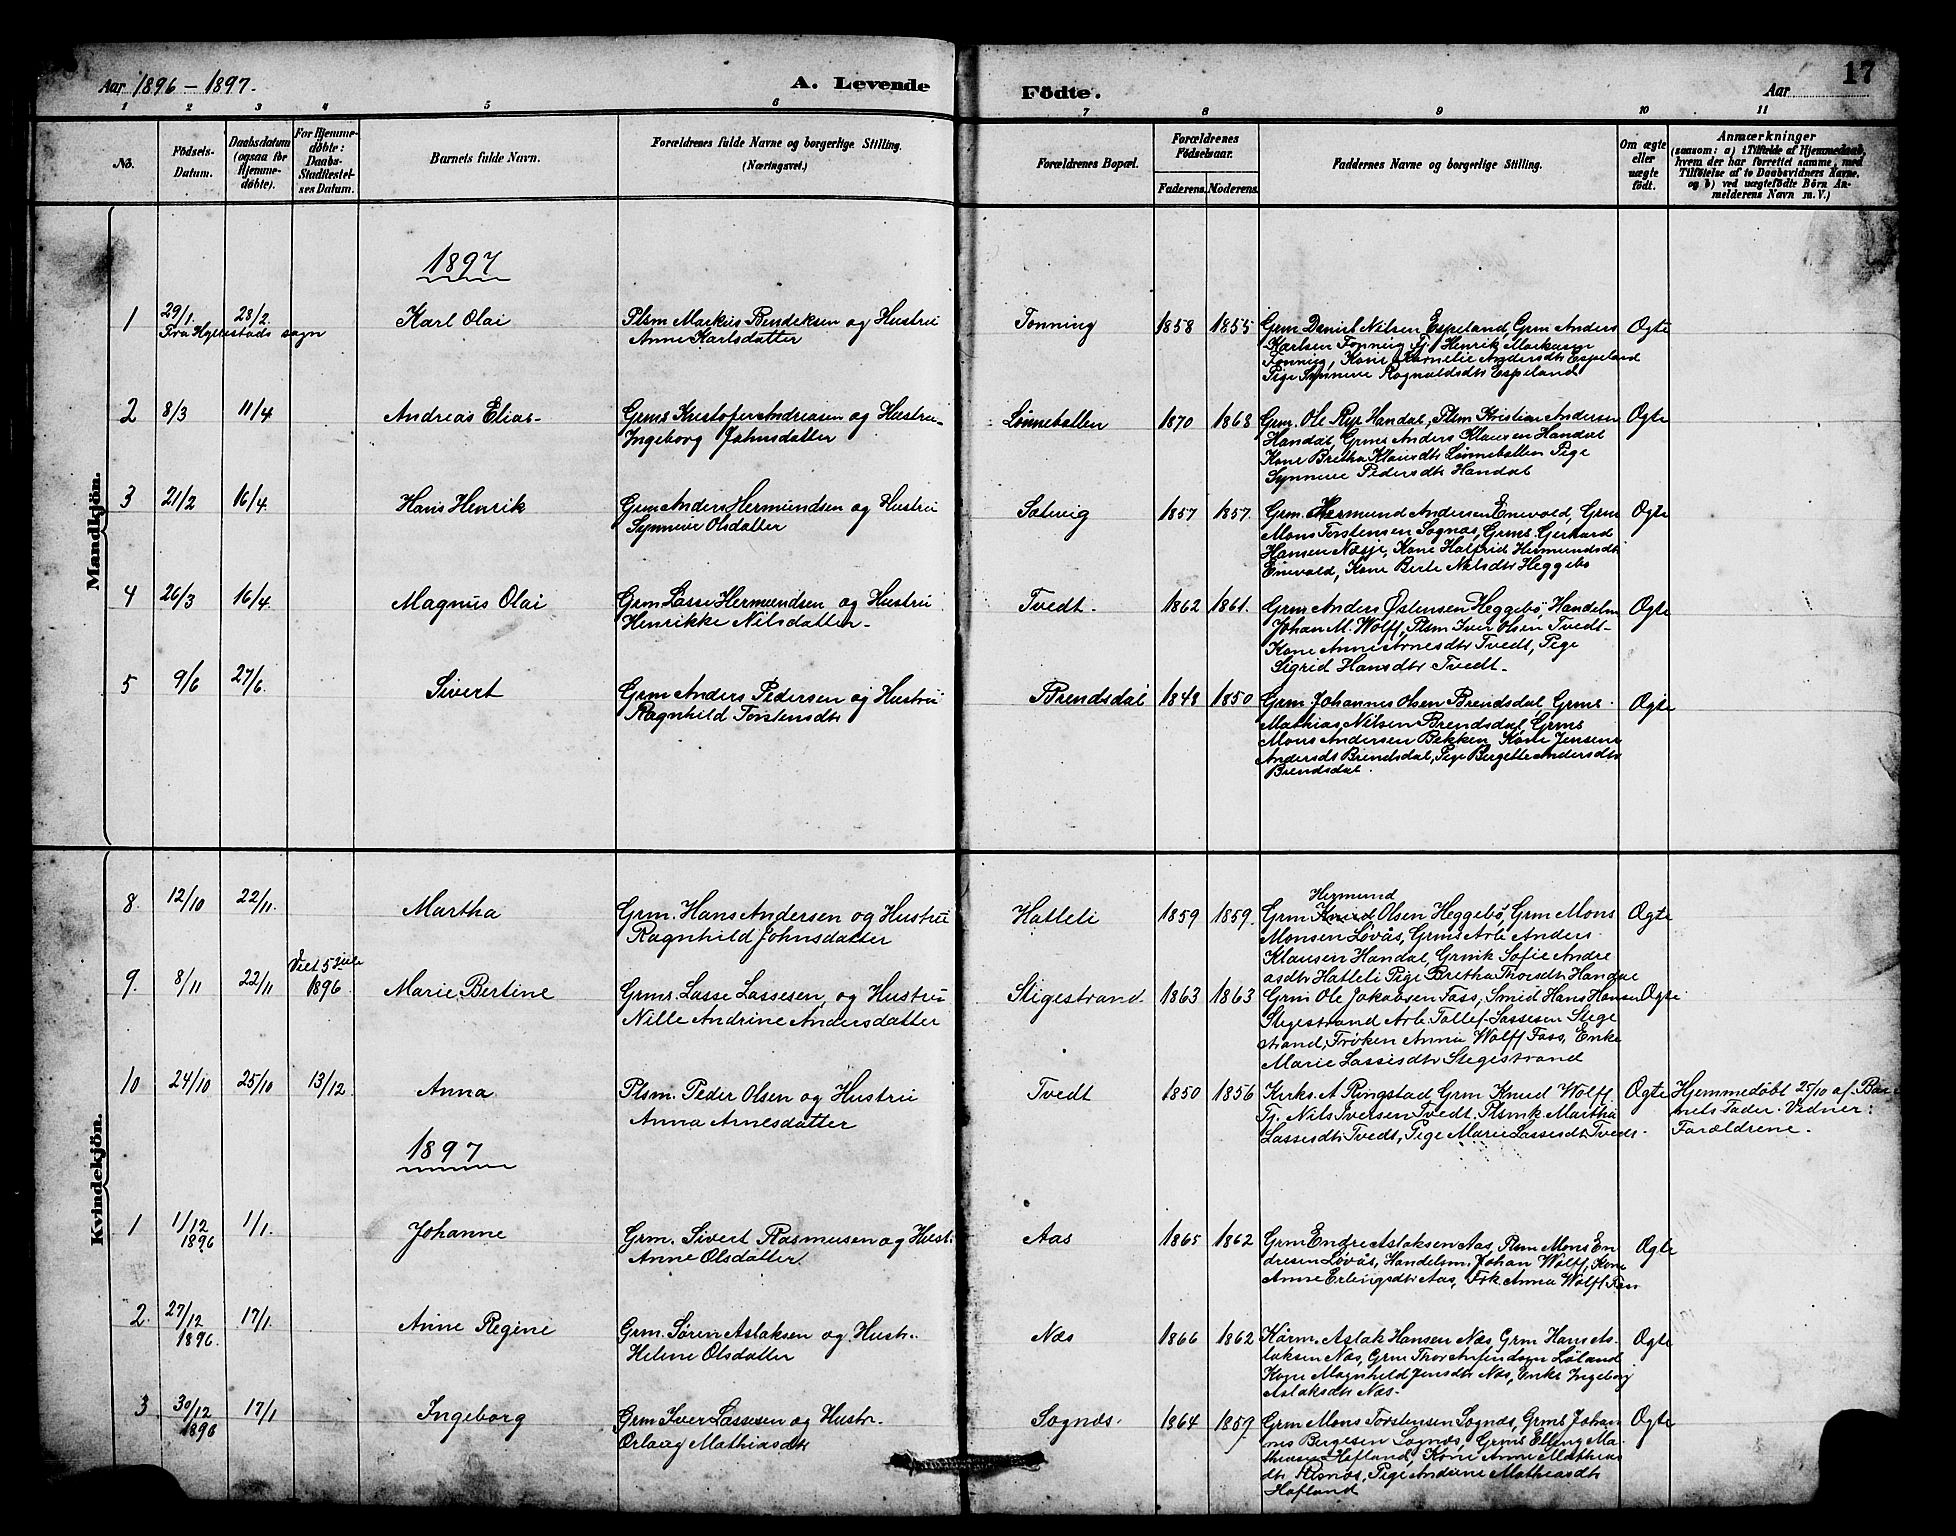 Aar 1896 – 1897.
A. Levende
Födte.
Aar
17
1 2 3 4 5 6 7 8 9 10 11
No.
Födsels-
Datum.
Daabsdatum
(ogsaa for
Hjemme-
døbte).
For Hjemme-
døbte:
Daabs-
Stadfæstel-
ses Datum.
Barnets fulde Navn.
Forældrenes fulde Navne og borgerlige Stilling.
(Næringsvei.)
Forældrenes Bopæl.
Forældrenes
Födselsaar.
Faderens. Moderens.
Faddernes Navne og borgerlige Stilling.
Om ægte
eller
uægte
födt.
Anmærkninger
(saasom: a) i Tilfælde af Hjemmedaab,
hvem der har forrettet samme, med
Tilføielse af to Daabsvidners Navne,
og b) ved uægtefödte Börn An-
melderens Navn m. V.)
Mandkjön.
1897
1 29/1. 28/2. Karl Olai Plsm Markus Bendiksen og Hustru Tonning 1858 1855 Grm Daniel Nilsen Espeland, Grm Anders Ægte
Fra Hyllestads sogn Anne Karlsdatter Karlsen Tonning Tj. Henrik Markusen
Tonning, Kone Kornelie Andersdtr Espeland
Pige Synneve Ragnvaldsdtr Espeland
2 8/3 11/4 Andreas Elias- Grms Kristofer Andreasen og Hustru- Lønnebotten 1870 1868 Grm. Ole Handal, Plsm Kristian Andersen Ægte
Ingeborg Johnsdatter Handal, Grms Anders Klausen Handal
Kone Bretha Klausdtr Lønnebotten Pige
Synneve Pedersdtr Handal
3 21/2 16/4. Hans Henrik Grm Anders Hermundsen og Hustru Solvig 1857 1857. Grm. Hermund Andersen Enevold, Grm Ægte
Synneve Olsdatter Mons Torstensen Sognøs, Grms Gerhard
Hansen Næsje, Kone Halfrid Hermundsdtr
Enevold, Kone Berte Nilsdtr Heggebø
4 26/3 16/4. Magnus Olai Grm Lasse Hermundsen og Hustru Tvedt. 1862 1861. Grm Anders Østensen Heggebø, Handelm Ægte
Henrikke Nilsdatter- Johan M. Wolff, Plsm Iver Olsen Tvedt-
Kone Anne Arnesdtr Tvedt, Pige
Sigrid Hansdtr Tvedt-
5 9/6 27/6. Sivert Grm Anders Pedersen og Hustru Brendsdal 1848 1850 Grm Johannes Olsen Brendsdal, Grms Ægte
Ragnhild Torstensdtr Mathias Nilsen Brendsdal, Grms
Mons Andersen Bekken, Kone Jensene
Andersdtr Brendsdal, Pige Bergitte Andersdtr
Brendsdal.
Kvindekjön.
Hermund
8. 12/10 22/11. Martha Grm. Hans Andersen og Hustru Hatleli 1859 1859. Grm Knud Olsen Heggebø, Grm Mons Ægte
Ragnhild Johnsdatter Monsen Løvås, Grms Arb Anders
Klausen Handal, Grmk Sofie Andre
asdtr Hatleli Pige Bretha Thoresdtr Handal
9. 8/11 22/11 1896. Marie Bertine Grms. Lasse Lassesen og Hustru Stigestrand. 1863 1863 Grm Ole Jakobsen Fass, Smed Hans Hansen Ægte
Nille Andrine Andersdatter Stegestrand Arb. Tollef Lassesen Stege
strand, Frøken Anna Wolff Fass, Enke
Marie Lassesdtr Stegestrand
10 24/10 25/10 13/12. Anna Plsm. Peder Olsen og Hustru Tvedt 1850 1856 Kirks. A Ringstad Grm Knud Wolff Ægte Hjemmedøbt 25/10 af Bar
Anna Arnesdatter Tj. Nils Iversen Tvedt. Plsmk Martha nets Fader. Vidner:
Lassesdtr Tvedt, Pige Marie Lassesdtr Tvedt. Forældrene.
1897
1 1/12 1/1. Johanne Grm. Sivert Rasmusen og Hust. Aas 1865 1862 Grm Endre Aslaksen Aas, Plsm Mons En Ægte
1896 Anne Olsdatter. dresen Løvås, Handelsm. Johan Wolff, Kone
Anne Erlingsdtr Aas, Frk. Anna Wolff Fass
2. 27/12 17/1. Anne Regine Grm. Søren Aslaksen og Hust. Næs 1866 1862 Kårm. Aslak Hansen Næs, Grm Hans As- Ægte
1896. Helene Olsdatter laksen Næs, Grm Thor Arfindsen Løland
Kone Magnhild Jensdtr Næs, Enke Ingeborg
Aslaksdtr Næs-
3 30/12 17/1 Ingeborg Grm Iver Lassesen og Hustr. Sognøs. 1864 1859 Grm Mons Torstensen Sognøs, Grms Johan Ægte
1896 Orlaug Mathiasdtr nes Børgesen Sognøs, Grms Elling Ma-
thiasen Hofland, Kone Anne Mathias
dtr Risnøs, Pige Andrine Mathiasdtr
Hofland